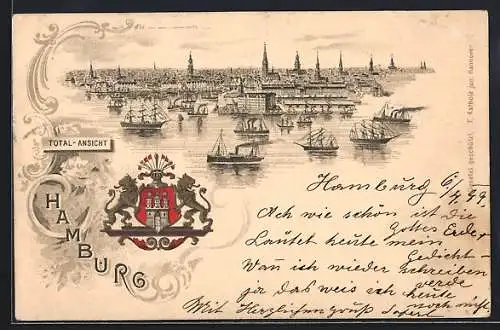 TOTAL-ANSICHT
HAMBURG
Hamburg 6/4. 99
Ach wie schön ist die
Gottes Erde,
Lautet heute mein
Gedicht-
Wan ich wieder schreiben
werde
ja das weis ich heute
noch nicht
Mit Herzlichen Gruß
gesetzl. geschützt. T. Karbole jun. Hannover